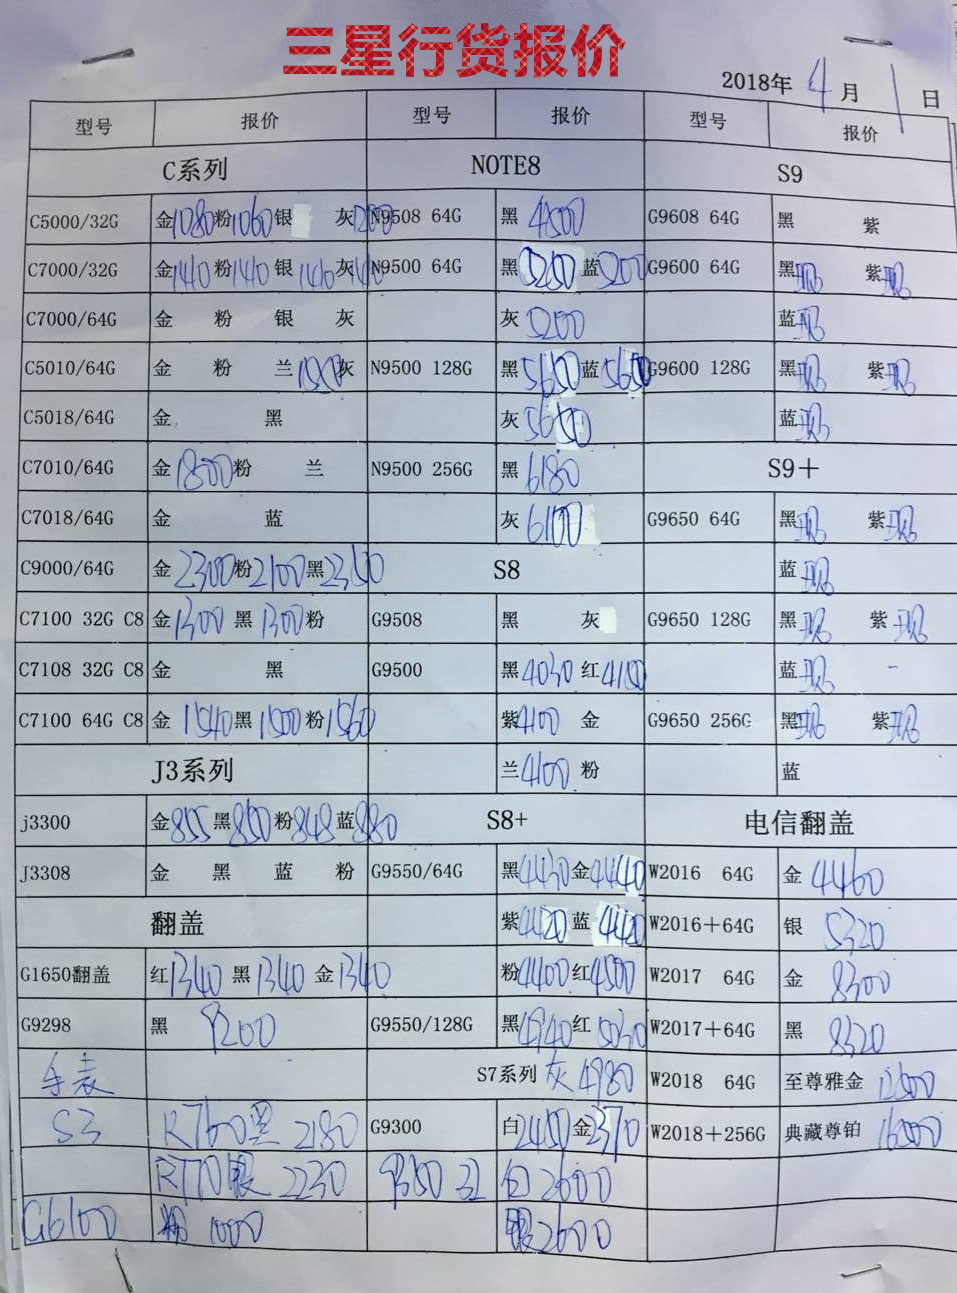 三星行货报价
2018年 4 月 1 日
型号 报价 型号 报价 型号 报价
C系列 NOTE8 S9
C5000/32G 金1080 粉1060 银 灰1200 N9508 64G 黑 4500 G9608 64G 黑 紫
C7000/32G 金1410 粉1410 银1410 灰1410 N9500 64G 黑5250 蓝5200 G9600 64G 黑现 紫现
C7000/64G 金 粉 银 灰 灰 5200 蓝现
C5010/64G 金 粉 兰 灰 N9500 128G 黑5650 蓝5650 G9600 128G 黑现 紫现
C5018/64G 金 黑 灰5650 蓝现
C7010/64G 金1800 粉 兰 N9500 256G 黑 6180 S9+
C7018/64G 金 蓝 灰 6100 G9650 64G 黑现 紫现
C9000/64G 金2300 粉2100 黑2300 S8 蓝现
C7100 32G C8 金1300 黑1300 粉 G9508 黑 灰 G9650 128G 黑现 紫现
C7108 32G C8 金 黑 G9500 黑4030 红4180 蓝现 -
C7100 64G C8 金 1540 黑1500 粉1560 紫4100 金 G9650 256G 黑现 紫现
J3系列 兰4100 粉 蓝
j3300 金855 黑850 粉848 蓝880 S8+ 电信翻盖
J3308 金 黑 蓝 粉 G9550/64G 黑4430 金4440 W2016 64G 金 4460
翻盖 紫4420 蓝4420 W2016+64G 银 5320
G1650翻盖 红1340 黑1340 金1340 粉4400 红4500 W2017 64G 金 8300
G9298 黑 9200 G9550/128G 黑4940 红5030 W2017+64G 黑 8320
手表 S7系列 灰4980 W2018 64G 至尊雅金 12500
S3 R760黑 2180 G9300 白2450 金2370 W2018+256G 典藏尊铂 16500
R770银 2230 9350 32 白2600
G6100 粉 1000 银2600